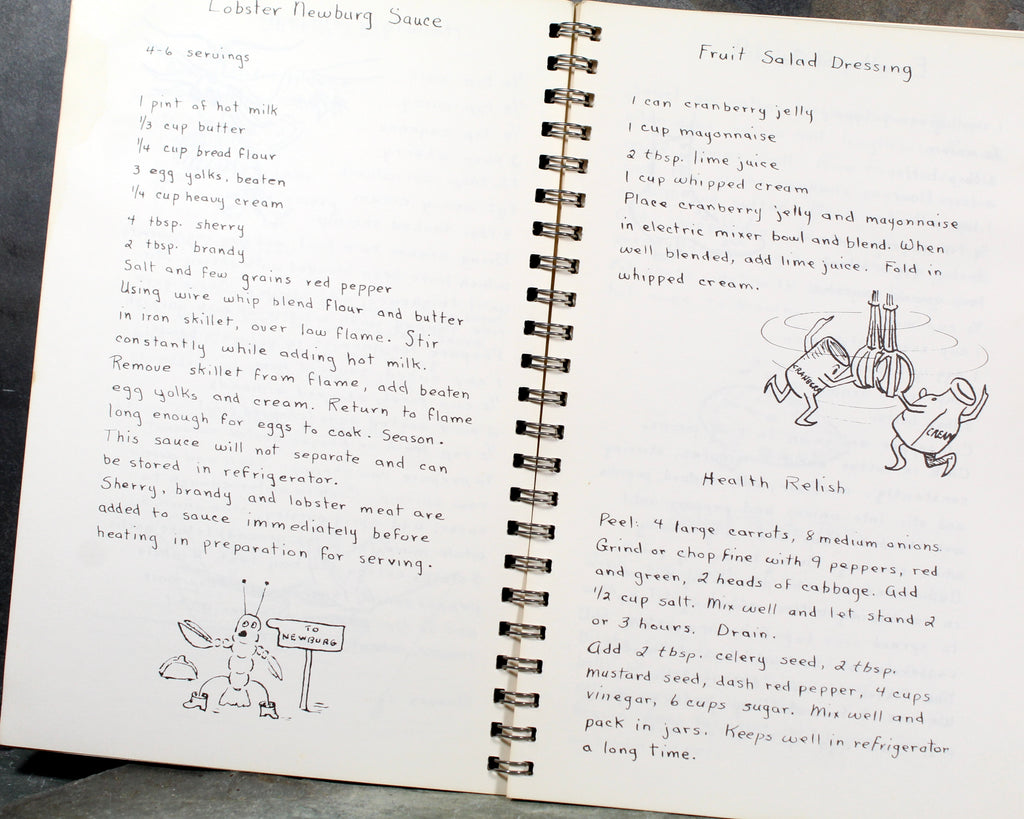 Lobster Newburg Sauce
4-6 servings
1 pint of hot milk
1/3 cup butter
1/4 cup bread flour
3 egg yolks. beaten
1/4 cup heavy cream
4 tbsp. sherry
2 tbsp. brandy
Salt and few grains red pepper
Using wire whip blend flour and butter
in iron skillet, over low flame. Stir
constantly while adding hot milk.
Remove skillet from flame, add beaten
egg yolks and cream. Return to flame
long enough for eggs to cook. Season.
This sauce will not separate and can
be stored in refrigerator.
Sherry, brandy and lobster meat are
added to sauce immediately before
heating in preparation for serving.
TO
NEWBURG
Fruit Salad Dressing
1 can cranberry jelly
1 cup mayonnaise
2 tbsp. lime juice
1 cup whipped cream
Place cranberry jelly and mayonnaise
in electric mixer bowl and blend. When
well blended, add lime juice. Fold in
whipped cream.
CREAM
Health Relish
Peel: 4 large carrots, 8 medium onions.
Grind or chop fine with 9 peppers, red
and green, 2 heads of cabbage. Add
1/2 cup salt. Mix well and let stand 2
or 3 hours. Drain.
Add 2 tbsp. celery seed, 2 tbsp.
mustard seed, dash red pepper, 4 cups
vinegar, 6 cups sugar. Mix well and
pack in jars. Keeps well in refrigerator
a long time.